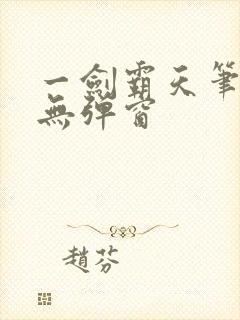 一劍霸天筆
無彈窗
趙芬